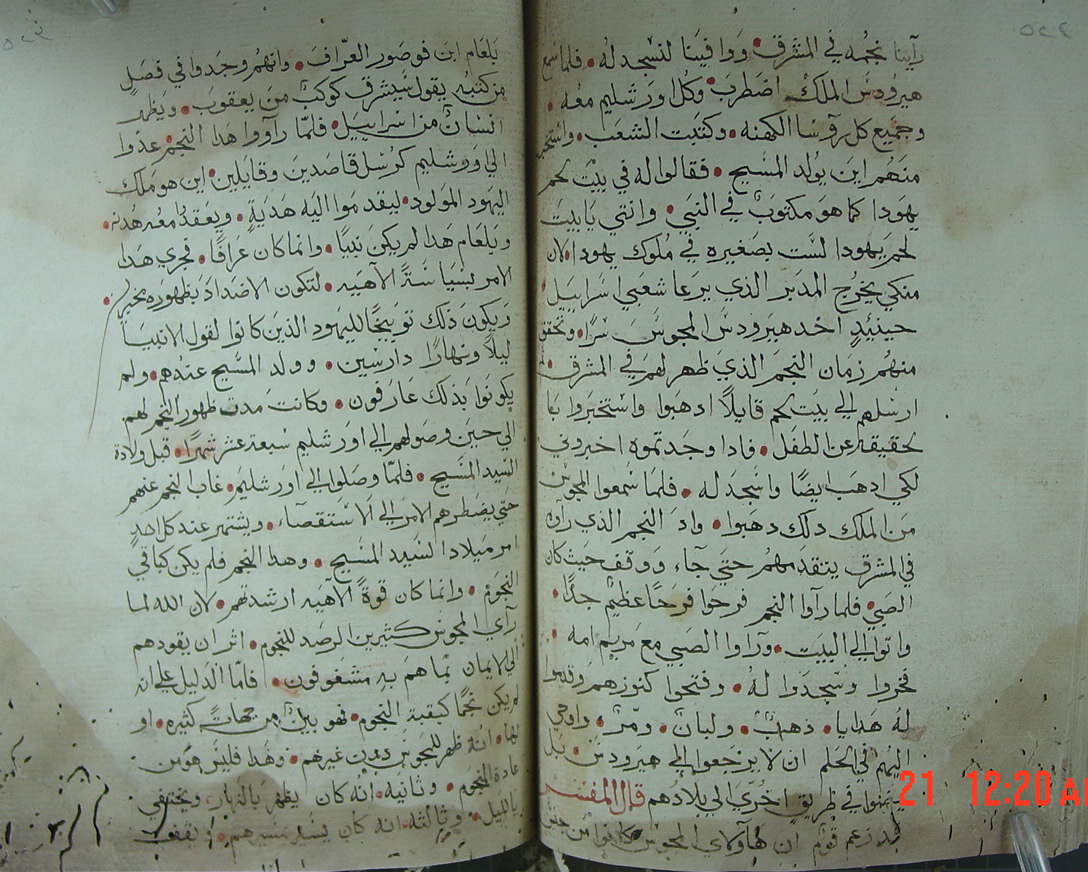 رآينا نجمه في المشرق • ووافينا لنسجد له • فلما سمع
هيرودس الملك اضطرب وكل اورشليم معه •
وجميع كل روسا الكهنه • وكتبت الشعب •
منهم اين يولد المسيح • فقالوا له في بيت لحم
يهودا كما هو مكتوب في النبي • وانتي يا بيت
لحم يهودا لست بصغيره في ملوك يهودا • لان
منكي يخرج المدبر الذي يرعا شعبي اسراييل •
حينيدٍ اخد هيرودس المجوس سرًا • وتحقق
منهم زمان النجم الذي ظهر لهم في المشرق •
ارسلهم الي بيت لحم قايلاً ادهبوا واستخبروا
لحقيقه عن الطفل • فادا وجدتموه اخبروني
لكي ادهب ايضًا واسجد له • فلما سمعوا المجوس
من الملك دلك دهبوا • واد النجم الدي راوه
في المشرق يتقدمهم حتي جآء ووقف حيث كان
الصبي • فلما رآوا النجم فرحوا فرحًا عظيم جدًا •
واتوا الي البيت • ورآوا الصبي مع مريم امه •
فخروا وسجدوا له • وفتحوا كنوزهم وقدموا
له هدايا • دهب • ولبان • ومر • واوحي
اليهم في الحلم ان لا يرجعوا الي هيرودس • بل
في طريق اخري الي بلادهم قال المفسر
قد زعم قوم ان هاولاي المجوس كانوا من
بلعام ابن فوصور العراف • وانهم وجدوا في فصل
من كتبه يقول سيشرق كوكب من يعقوب • ويظهر
انسان من اسراييل • فلما رآووا هدا النجم • عدوا
الي اورشليم كرسل قاصدين وقايلين • اين هو ملك
اليهود المولود • ليقدموا اليه هدية • ويعقد معه هدنه •
وبلعام هدا لم يكن نبيًا • وانما كان عرافًا • فجري هدا
الامر بسياسةً الآهيه • لتكون الاضداد بظهوره
ويكون دلك توبيخًا لليهود الذين كانوا لقول الانبيا
ليلاً ونهارًا دارسين • وولد المسيح عندهم • ولم
يكونوا بدلك عارفون • وكانت مدت ظهور النجم لهم
الي حين وصولهم الي اورشليم سبعة عشر شهرًا • قبل ولادة
السيد المسيح • فلما وصلوا الي اورشليم • غاب النجم عنهم
حتي يضطرهم الامر الي الاستقصآء • ويشتهر عند كل احدٍ
امر ميلاد السيد المسيح • وهدا النجم فلم يكن كباقي
النجوم • وانما كان قوةً الآهيه ارشدتهم • لان الله لما
رآي المجوس كثيرين الرصد للنجوم • اثر ان يقودهم
الي الايمان بما هم به مشغوفون • فامّا الدليل علي انه
لم يكن نجمًا كبقية النجوم • فهو بين من جهات كثيره • او
لها • انه ظهر للمجوس دون غيرهم • وهدا فليس هو من
عادة النجوم • وثانيه • انه كان يظهر بالنهار • ويختفي
بالليل • وثالثه • انه كان يسير بسيرهم • ويقف